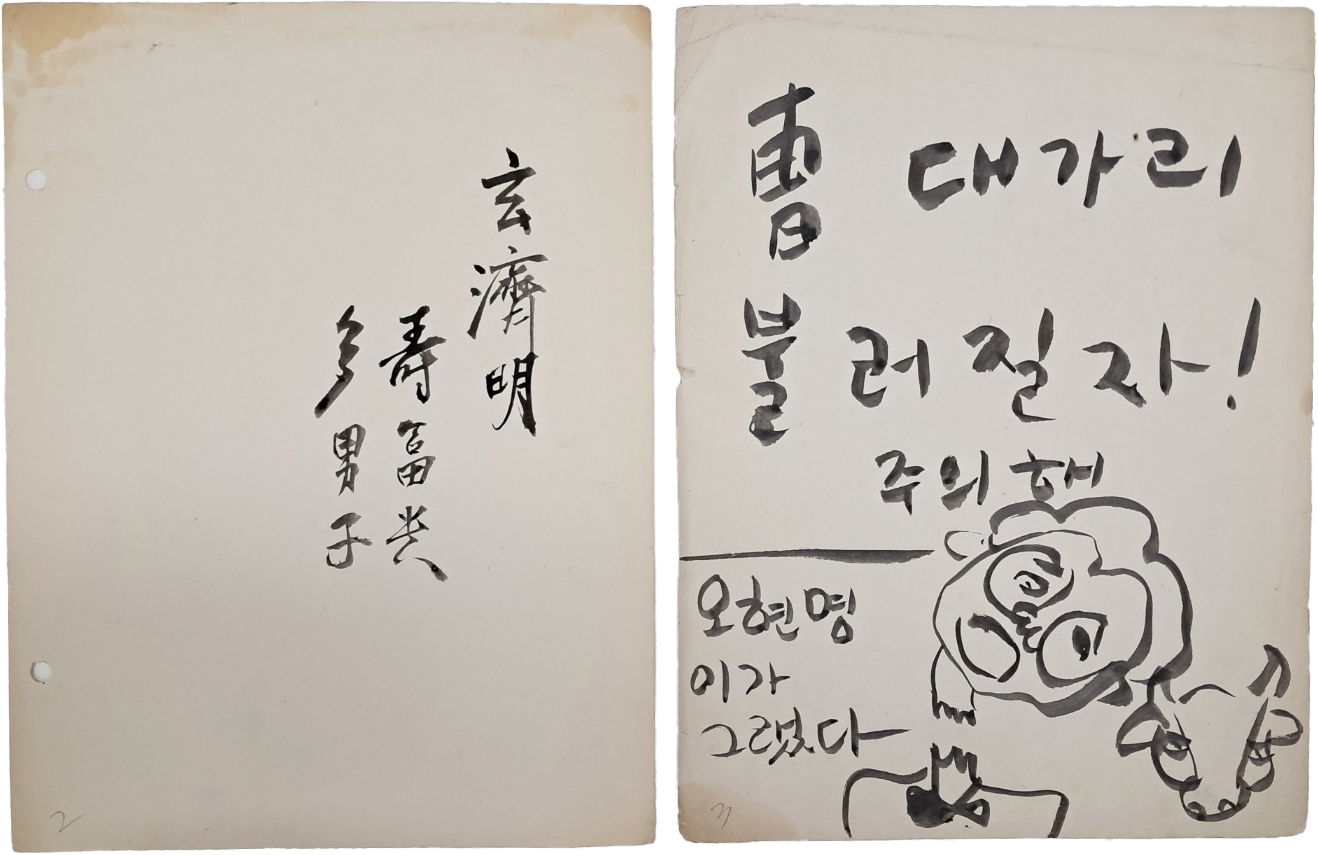 玄濟明
壽富貴
多男子
2
曺 대가리
불러질자!
주의해
오현명
이가
그렸다
3